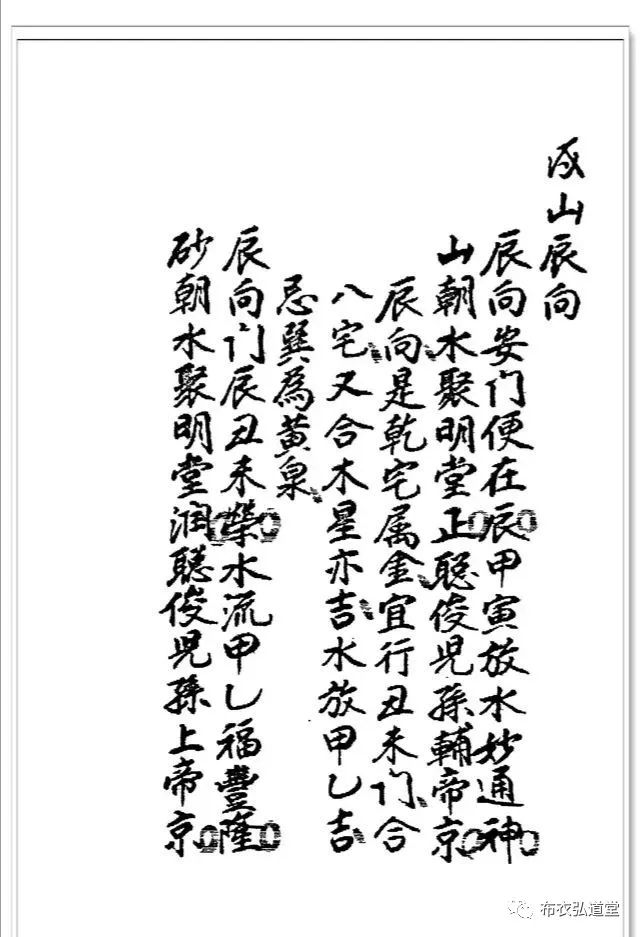 戌山辰向
辰向安门便在辰甲寅放水妙通神
山朝水聚明堂正聪俊児孫輔帝京
辰向是乾宅属金宜行丑未门合
八宅又合木星亦吉水放甲乙吉
忌巽為黄泉
辰向门辰丑未榮水流甲乙福豐隆
砂朝水聚明堂润聪俊児孫上帝京
布衣弘道堂